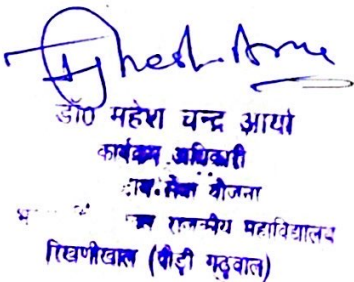 डॉ0 महेश चन्द्र आर्या
कार्यक्रम अधिकारी
सेवा योजना
राजकीय महाविद्यालय
रिखणीखाल (पौड़ी गढ़वाल)